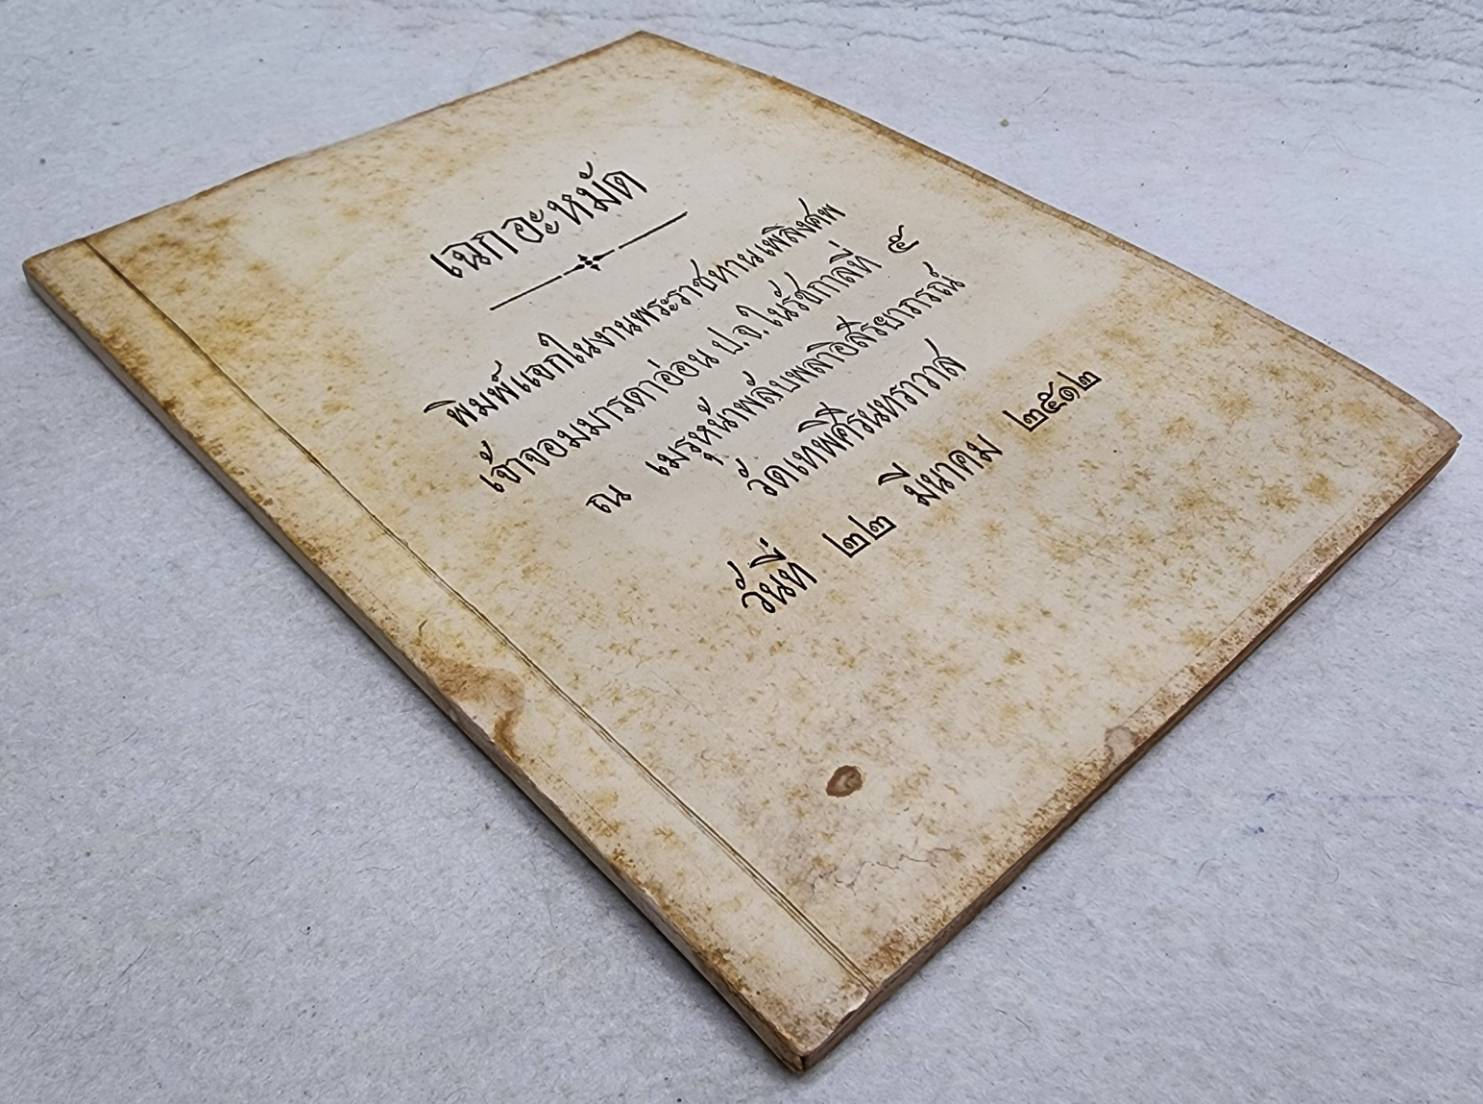 เฉกอะหมัด
พิมพ์แจกในงานพระราชทานเพลิงศพ
เจ้าจอมมารดาอ่อน ป.จ. ในรัชกาลที่ ๕
ณ เมรุหน้าพลับพลาอิสริยาภรณ์
วัดเทพศิรินทราวาส
วันที่ ๒๒ มีนาคม ๒๕๑๒